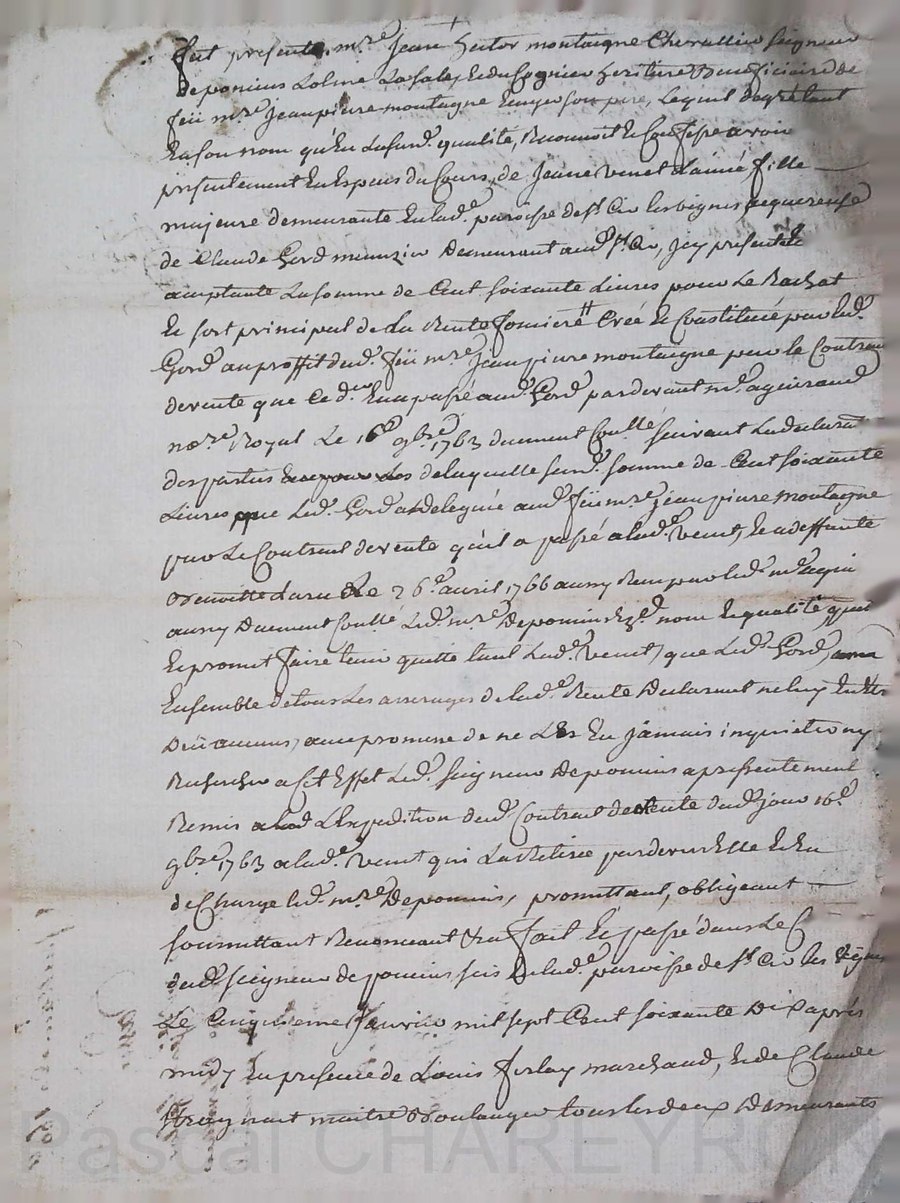 fut present mre Jean hector montaigne Chevallier seigneur
depomius Lolme Lasalle, heritier Beneficiaire de
feü mre Jeanpierre montagne Ecuyer son pere, Lequel degré tant
En son nom qu'En Lasusd. qualité, Reconnoit Et Confesse avoir
presentement En Espesses du Cours, de Jeanne venet Lainné fille
majeure demeurante En lad.e paroisse de st. Cir les vignes acquereuse
de Claude Gord meunier Demeurant aud. st. Cir, Icy presente Et
acceptante La somme de Cent soixante Livres pour Le Rachat
Et sort principal de La Rente fonciere Créé Et Constituée par led.
Gord au proffit dud. feü mre Jeanpierre montaigne par le Contrat
de vente que Ced.r En a passé aud. Gord pardevant me aguiraud
nore Royal Le 16e 9bre 1763 duement Conllé suivant La declaration
des parties de laquelle susd. somme de Cent soixante
Livres que Led. Gord a deleguée aud. feü mre Jeanpierre montagne
par Le Contrat de vente qu'il a passé a lad.e venet,
Le 26e avril 1766 aussy Reçu par led. me
aussy Duement Conllé Led. mre Depomius Ezd. nom Et qualité quitte
Et promet faire tenir quitte tant Lad.e venet, que Led. Gord,
Ensemble de tous Les arrerages de lad.e Rente Declarant ne luy En Etre
Deü aucuns, avec promesse de ne Les En Jamais inquietter ny
Rechercher a Cet Effet Led. seigneur Depomius a presentement
Remis L'Expedition dud. Contrat de vente dud. jour 16e
9bre 1763 a lad.e venet qui La Retirée pardevers Elle Et En
deCharge led. mre Depomius, promettant, obligeant
soumettant Renonceant &ra fait Et passé dans Le
dud. seigneur de pomius sis En lad.e paroisse de st. Cir les vignes
Le Cinquieme fevrier mil sept Cent soixante Dix après
midy En presence de Louis ferlay marchand, Et de Claude
maitre Boulanger tous les deux Demeurants
Pascal CHAREYRON